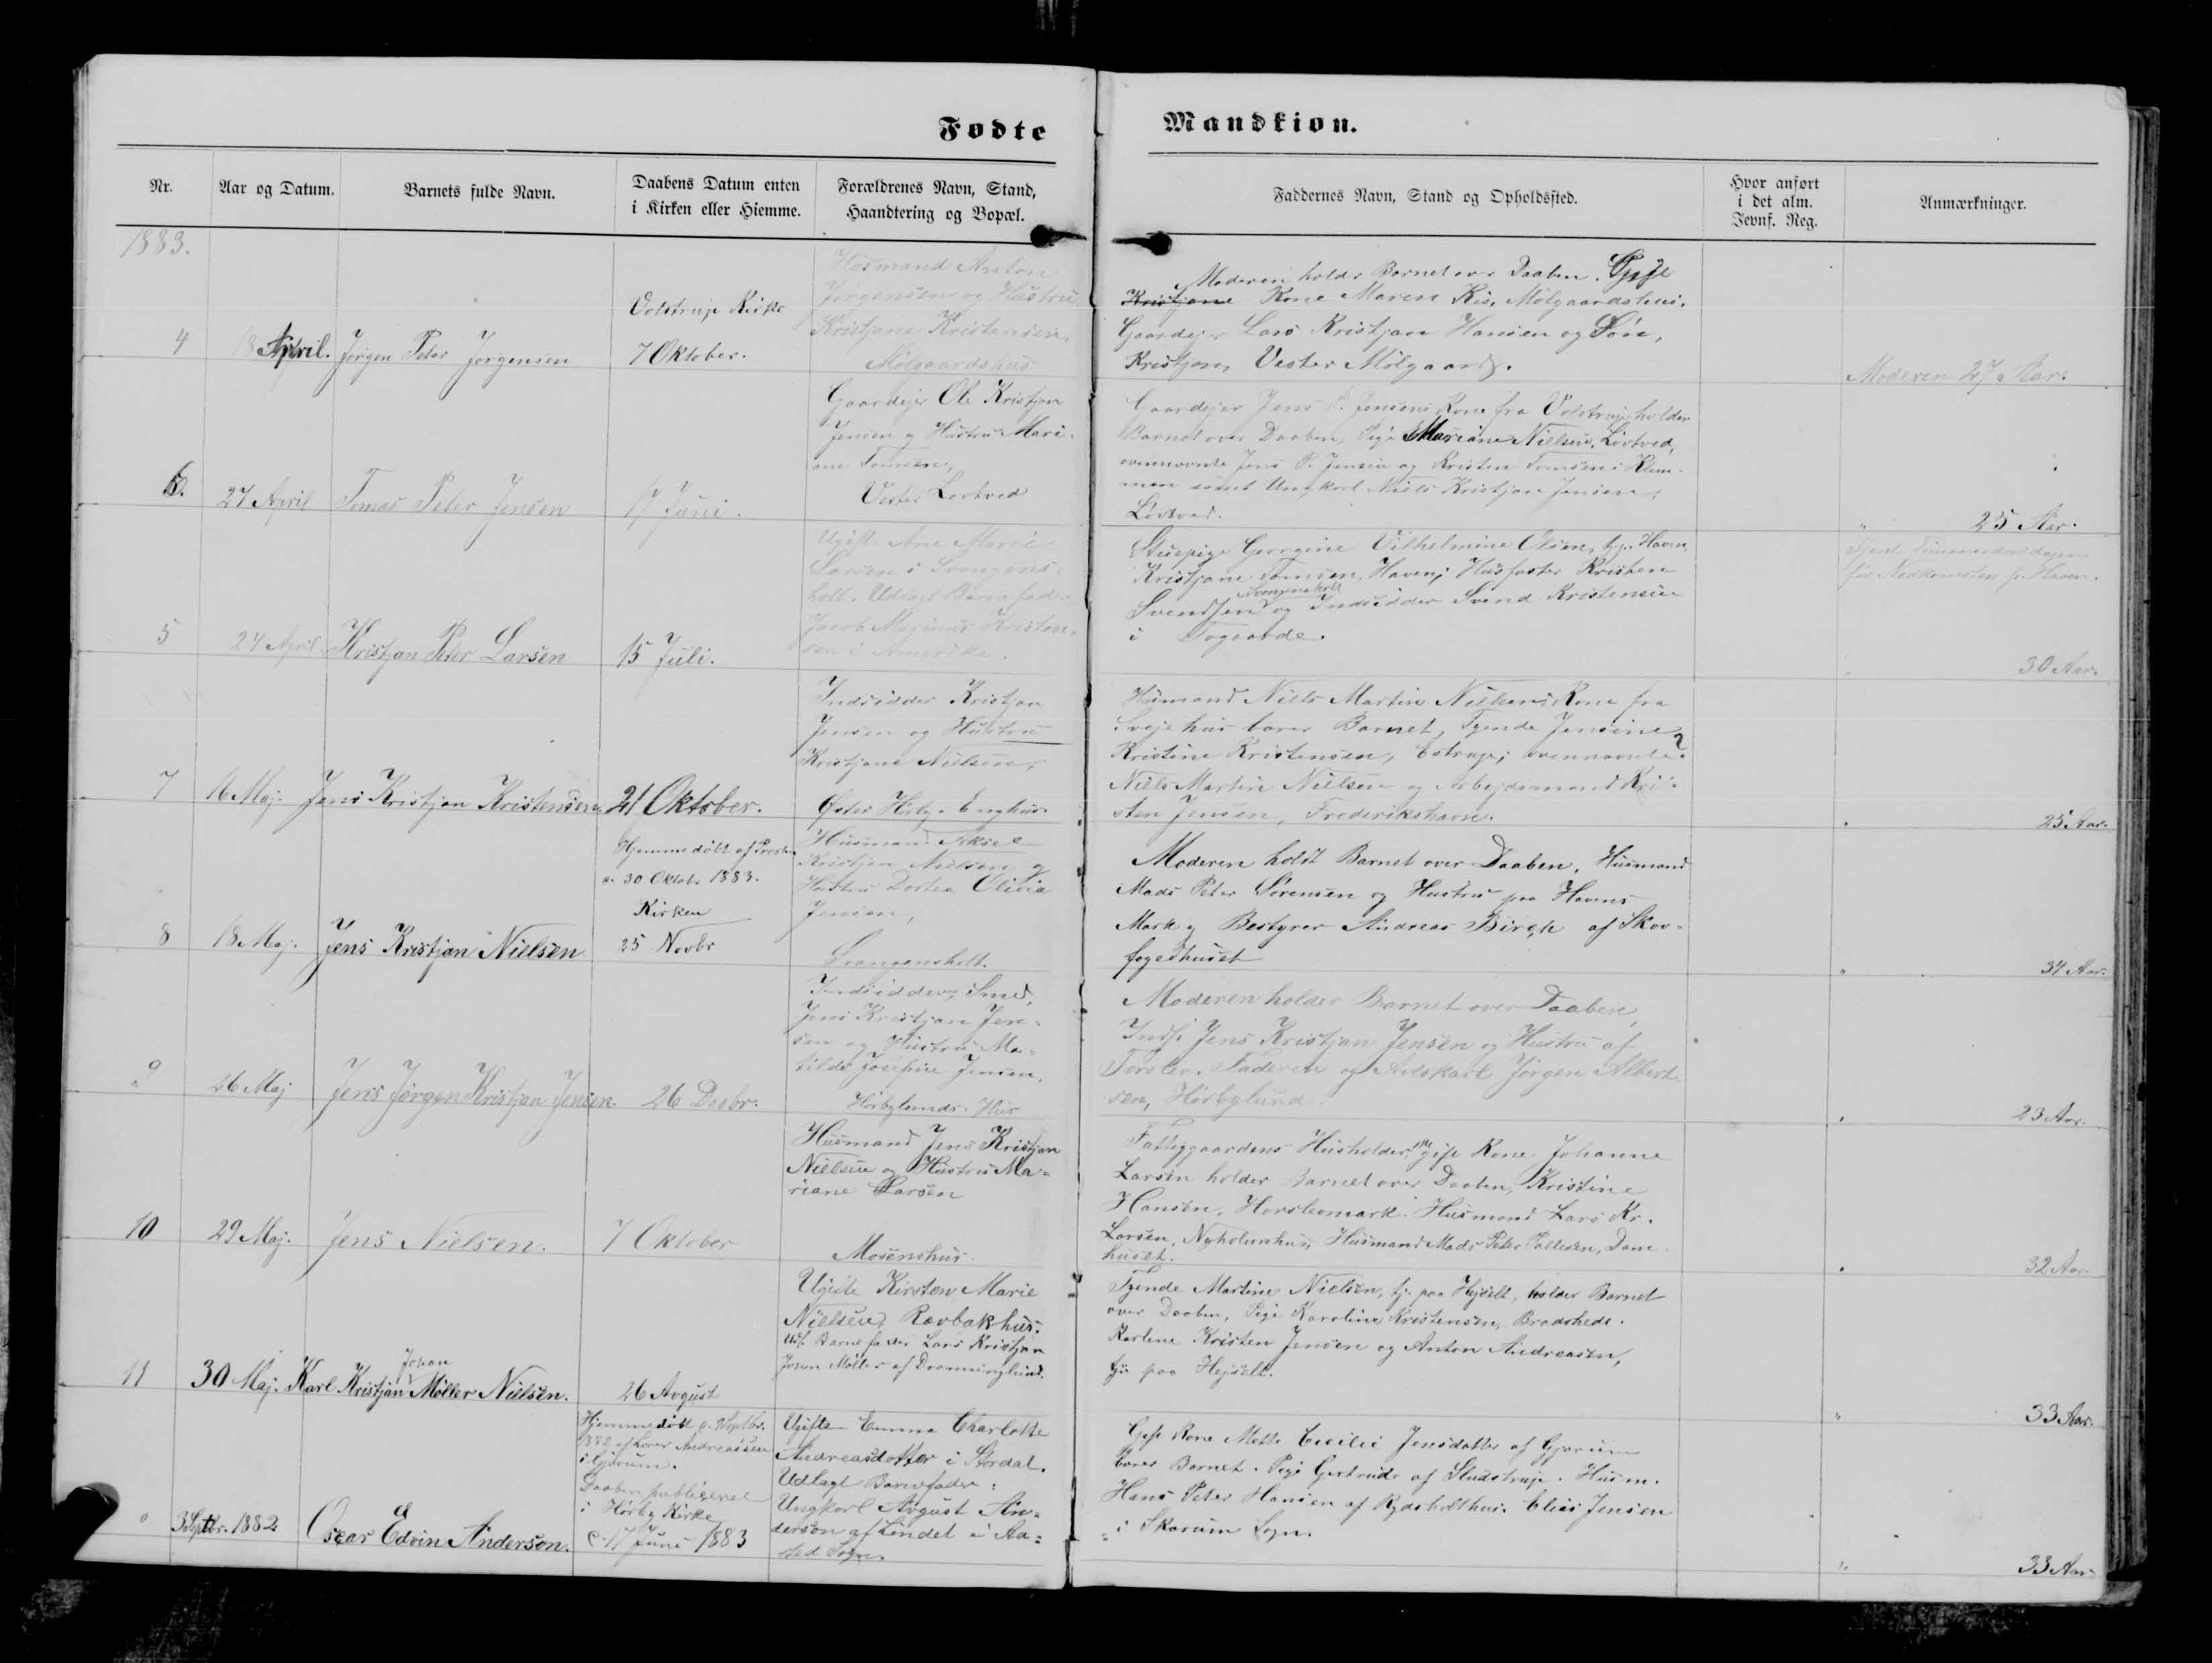 Fødte Mandkiøn.
Nr.
Aar og Datum.
Barnets fulde Navn.
Daabens Datum enten
i Kirken eller Hiemme.
Forældrenes Navn, Stand,
Haandtering og Bopæl.
Faddernes Navn, Stand og Opholdssted.
Hvor anført
i det alm.
Jevnf. Reg.
Anmærkninger.
1883.
4
18 April.
Jørgen Peter Jørgensen
Volstrup Kirke
7 Oktober.
Husmand Anton
Jørgensen og Hustru
Kristjane Kristensen,
Mølgaardshus
Moderen holdr Barnet over Daaben. Gift
Kristjane Kone Maren Kir. Mølgaardshus.
Gaardejer Lars Kristjan Hansen og Søn,
Kristjan, Vester Mølgaard.
Moderen 27 Aar.
6.
27 April
Tomas Peter Jensen
17 Juni.
Gaardejer Ole Kristjan
Jensen og Hustru Mari-
ane Tomsen,
Vester Løvtved
Gaardejer Jens P. Jensens Kone fra Volstrup holder
Barnet over Daaben, Pige Mariane Nielsen, Løvtved,
ovennævnte Jens P. Jensen og Kristen Tomsen i
samt Ungkarl Niels Kristjan Jensen,
Løvtved.
" 25 Aar.
5
24 April
Kristjan Peter Larsen
15 Juli.
Ugift Ane Marie
Larsen i Svangens-
holt. Udlagt Barnefader
Jacob Marinus Kristen-
sen i Amerika.
Stuepige Georgine Vilhelmine Olsen, tj. Haven,
Kristjane Tomsen, Haven; Husfæster Kristen
Svendsen Svangensholt og Indsidder Svend Kristensen
i Togaarde.
Tjent
før Nedkomsten p. Haven.
30 Aar.
7
16 Maj.
Jens Kristjan Kristensen
21 Oktober.
Indsidder Kristjan
Jensen og Hustru
Kristjane Nielsen,
Øster Enghus
Husmand Niels Martin Nielsens Kone fra
Svejehus bærer Barnet, Tyende Jensine
Kristine Kristensen, Estrup; ovennævnte?
Niels Martin Nielsen og Arbejdsmand Kri-
sten Jensen, Frederikshavn.
25 Aar.
8
18 Maj.
Jens Kristjan Nielsen
Hjemmedøbt af Præsten
d. 30 Oktobr 1883.
Kirken
25 Novbr
Husmand Aksel
Kristjan Nielsen og
Hustru Dortea Olivia
Jensen,
Svangensholt.
Moderen holdt Barnet over Daaben. Husmand
Mads Peter Sørensen og Hustru paa Havens
Mark og Bestyrer Andreas Birch af Skov-
fogedhuset
" 34 Aar.
9
26 Maj
Jens Jørgen Kristjan Jensen.
26 Decbr.
Indsidder, Smed,
Jens Kristjan Jen-
sen og Hustru Ma-
tilde Josefine Jensen,
Hørbylunds Hus
Moderen holder Barnet over Daaben,
Inds. Jens Kristjan Jensen og Hustru af
Torslev. Faderen og Avlskarl Jørgen Albert-
sen, Hørbylund.
23 Aar.
10
29 Maj.
Jens Nielsen.
7 Oktober
Husmand Jens Kristjan
Nielsen og Hustru Ma-
riane Larsen
Mosenshus
Fattiggaardens Husholderske, gift Kone Johanne
Larsen holder Barnet over Daaben, Kristine
Hansen, Horslevmark. Husmand Lars Kr.
Larsen, Nyholmhus, Husmand Mads Peter Pallesen, Dam-
huset.
32 Aar.
11
30 Maj.
Karl Kristjan Johan Møller Nielsen.
26 Avgust
Ugifte Kirsten Marie
Nielsen, Rævbakhus.
Udl. Barnefader Lars Kristjan
Johan Møller af Dronninglund.
Tyende Martine Nielsen, tj. paa Hejselt, holder Barnet
over Daaben, Pige Karoline Kristensen, Brødshede.
Karlene Kristen Jensen og Anton Andreasen,
tjr paa Hejselt.
" 33 Aar.
0
3 Septbr. 1882
Oscar Edvin Anderson.
Hjemmedøbt d. Septbr.
1882 af Lærer Andreassen
i Gjærum.
Daaben publiceret
i Hørby Kirke
d. 17 Juni 1883
Ugifte Emma Charlotte
Andreasdotter i Stordal.
Udlagt Barnefader:
Ungkarl Avgust An-
derson af Lindet i Aa-
sted Sogn.
Gift Kone Mette Cecilie Jensdatter af Gjærum
bærer Barnet. Pige Gertrude af Sludstrup. Husm.
Hans Peter Hansen af Rydsholthus. Elias Jensen
i Skærum Sogn.
" 33 Aar.